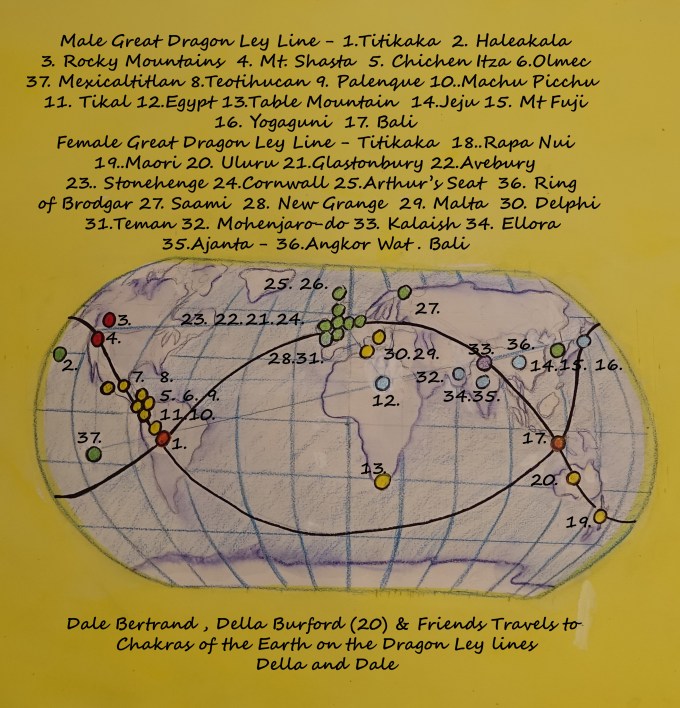 Male Great Dragon Ley Line - 1.Titikaka 2. Haleakala
3. Rocky Mountains 4. Mt. Shasta 5. Chichen Itza 6.Olmec
37. Mexicaltitlan 8.Teotihucan 9. Palenque 10..Machu Picchu
11. Tikal 12.Egypt 13.Table Mountain 14.Jeju 15. Mt Fuji
16. Yogaguni 17. Bali
Female Great Dragon Ley Line - Titikaka 18..Rapa Nui
19..Maori 20. Uluru 21.Glastonbury 22.Avebury
23.. Stonehenge 24.Cornwall 25.Arthur's Seat 36. Ring
of Brodgar 27. Saami 28. New Grange 29. Malta 30. Delphi
31.Teman 32. Mohenjaro-do 33. Kalaish 34. Ellora
35.Ajanta - 36.Angkor Wat . Bali
25. 26.
27.
3.
23. 22.21.24.
4.
2.
28.31.
30.29.
33.
36.
14.15. 16.
7. 8.
32.
12.
34.35.
5. 6. 9.
11.10.
37.
1.
17.
13.
20.
19.
Dale Bertrand , Della Burford (20) & Friends Travels to
Chakras of the Earth on the Dragon Ley lines
Della and Dale